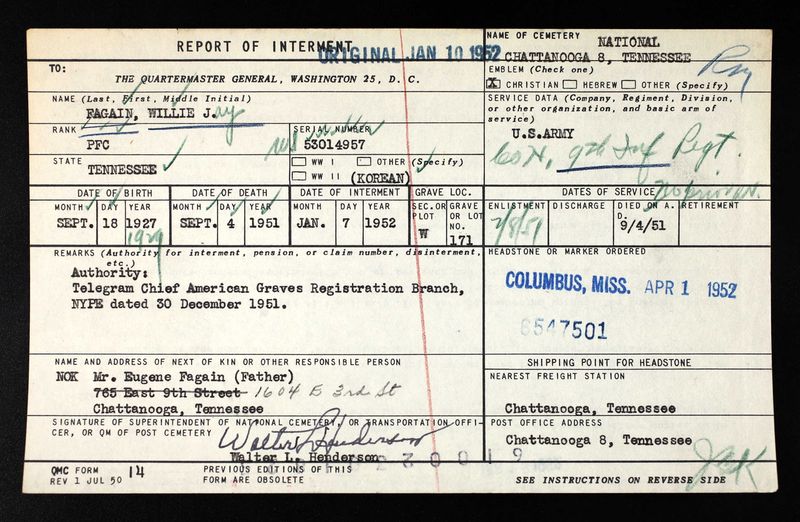 REPORT OF INTERMENT
ORIGINAL JAN 10 1952
TO:
THE QUARTERMASTER GENERAL, WASHINGTON 25, D. C.
NAME OF CEMETERY NATIONAL
CHATTANOOGA 8, TENNESSEE
EMBLEM (Check one)
X CHRISTIAN HEBREW OTHER (Specify)
NAME (Last, First, Middle Initial)
FAGAIN, WILLIE J.ay
SERVICE DATA (Company, Regiment, Division, or other organization, and basic arm of service)
U.S.ARMY
Co H, 9th Inf Regt.
RANK
PFC
SERIAL NUMBER
53014957
STATE
TENNESSEE
WW I OTHER (Specify)
WW II (KOREAN)
DATE OF BIRTH
MONTH DAY YEAR
SEPT. 18 1927
1929
DATE OF DEATH
MONTH DAY YEAR
SEPT. 4 1951
DATE OF INTERMENT
MONTH DAY YEAR
JAN. 7 1952
GRAVE LOC.
SEC.OR PLOT
W
GRAVE OR LOT NO.
171
DATES OF SERVICE
ENLISTMENT
2/8/51
DISCHARGE
DIED ON A. D.
9/4/51
RETIREMENT
REMARKS (Authority for interment, pension, or claim number, disinterment, etc.)
Authority:
Telegram Chief American Graves Registration Branch,
NYPE dated 30 December 1951.
HEADSTONE OR MARKER ORDERED
COLUMBUS, MISS. APR 1 1952
6547501
NAME AND ADDRESS OF NEXT OF KIN OR OTHER RESPONSIBLE PERSON
NOK Mr. Eugene Fagain (Father)
765 East 9th Street 1604 E 3rd St
Chattanooga, Tennessee
SHIPPING POINT FOR HEADSTONE
NEAREST FREIGHT STATION
Chattanooga, Tennessee
SIGNATURE OF SUPERINTENDENT OF NATIONAL CEMETERY, OR TRANSPORTATION OFFI-
CER, OR QM OF POST CEMETERY
Walter L. Henderson
Walter L. Henderson
POST OFFICE ADDRESS
Chattanooga 8, Tennessee
QMC FORM 14
REV 1 JUL 50
PREVIOUS EDITIONS OF THIS
FORM ARE OBSOLETE
SEE INSTRUCTIONS ON REVERSE SIDE